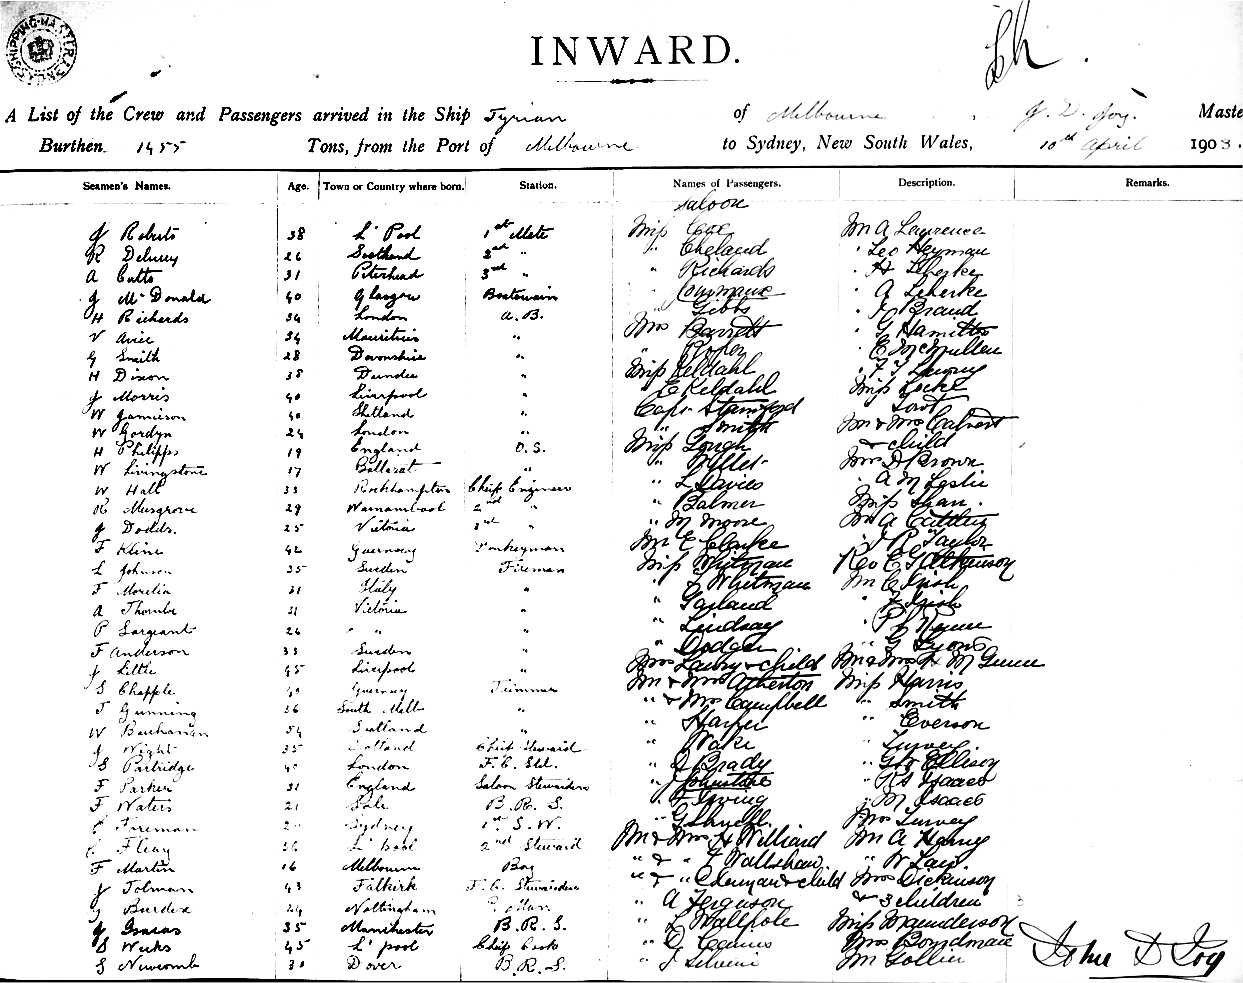 SHIPPING MASTER'S
INWARD.
A List of the Crew and Passengers arrived in the Ship Tyrian of Melbourne J. D. Joy. Maste
Burthen. 1455 Tons, from the Port of Melbourne to Sydney, New South Wales, 10th April 1903.
Seamen's Names. Age. Town or Country where born. Station. Names of Passengers. Description. Remarks.
Saloon
J Roberts 38 L'Pool 1st Mate Miss Cox Mr A Lawrence
R 26 Scotland 2nd " " Cheland " Leo Heyman
A Catto 31 Peterhead 3rd " " Richards " H Scherke
J McDonald 40 Glasgow Boatswain " " A Scherke
H Richards 34 London A.B. " Gibbs " Braud
V 34 Mauritius " Mrs Barrett " G Hamilton
G Smith 28 Devonshire " " " E McMullen
H Dixon 38 Dundee " Miss Keldahl " F
J Morris 40 Liverpool " " E Keldahl Miss Locke
W Jamieson 40 Shetland " Capt Stamford "
W Gordyn 24 London " " Smith Mr & Mrs Calvert
H Philipps 19 England O.S. Miss Gough & child
W Livingstone 17 Ballarat " " Mrs D Brown
W Hall 33 Rockhampton Chief Engineer " L Davies " A M Leslie
R Musgrove 29 Warnambool 2nd " " Balmer Miss
J Dodds. 25 Victoria 3rd " " M Moore Mr A
F Kline 42 Guernsey Donkeyman Mr C Clarke " J R Taylor
L Johnson 35 Sweden Fireman Miss Whitman Rev E G Atkinson
F Morelia 31 Italy " " Whitman Mr C Irish
A Thombe 31 Victoria " " Garland " Irish
P Sargeant 26 " " " " Lindsay " P
F Anderson 33 Sweden " " " G Lyons
J Little 45 Liverpool " Mrs Lawry & child Mr & Mrs H M Gunn
S Chapple 40 Guernsey Trimmer Mr & Mrs Atherton Miss Harris
T Gunning 26 South Melb " " & Mrs Campbell " Smith
W Buchanan 54 Scotland " " Harper " Everson
J Wight 35 Scotland Chief Steward " Wake " Turvey
S Partridge London F.C. Std. " D Brady " Geo Ellison
F Parker 31 England Saloon Stewardess " J Johnstone " Isaacs
F Waters 21 Sale B.R.S. " Irving " M Isaacs
Foreman Sydney 1st S.W. " G Mrs Turvey
Fleay 26 L'pool 2nd Steward Mr & Mrs H Williard Mr A Harvey
F Martin 16 Melbourne Boy " & " F Wallshaw. " W Law.
J Tolman 43 Falkirk F.C. Stewardess " & " & child Mrs Dickinson
Burdex 24 Nottingham " A Ferguson & 3 children
J 35 Manchester B.R.S. " L Wallpole Miss Maunderson
S Weeks 45 L'pool Chief Cook " Mrs Boydman
S Newcomb 30 Dover B.R.S. " J Mr Gollier
John D Joy